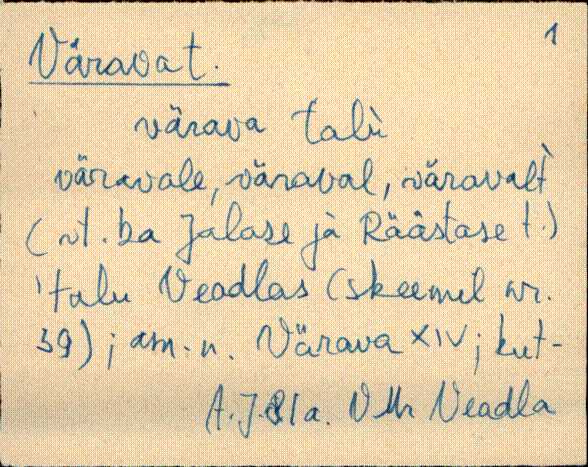 1
Värava t.
värava talù
väravale, väraval, väravalt̀
(vt. ka Jalase jà Räästase t.)
'talu Veadlas (skeemil nr.
39); am. n. Värava XIV; kut-
A.J. 81a. VMr Veadla